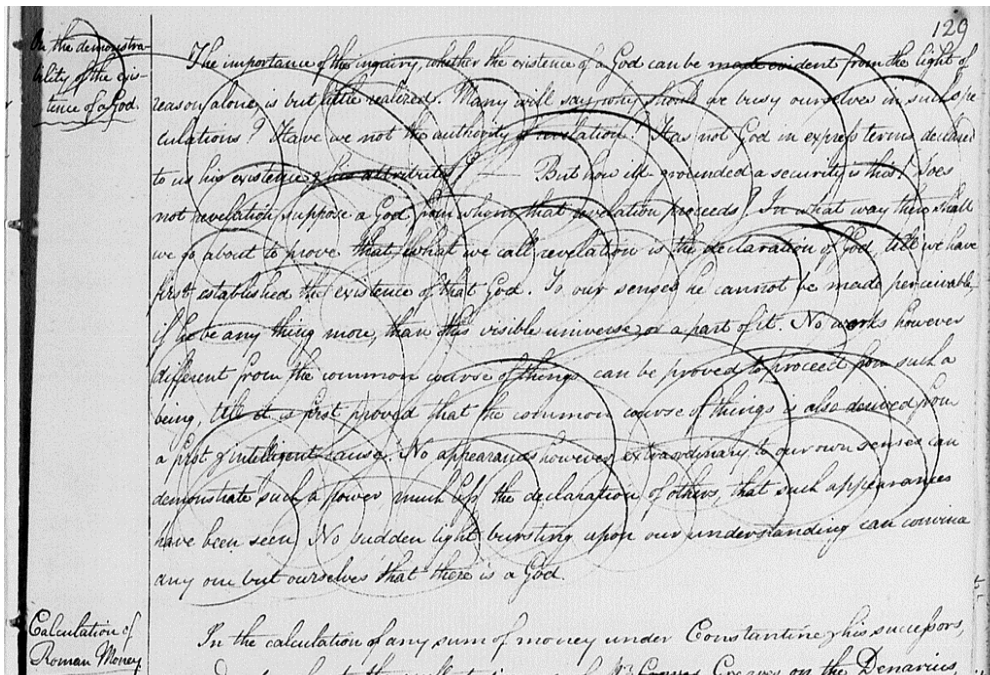 129
On the demonstra-
bility of the exis-
tence of a God.
The importance of the inquiry, whether the existence of a God can be made evident from the light of
reason alone, is but little realized. Many will say, why should we busy ourselves in such spe
culations? Have we not the authority of revelation? Has not God in express terms declared
to us his existence & his attributes? — But how ill-grounded a security is this! Does
not revelation suppose a God from whom that revelation proceeds? In what way then shall
we go about to prove that what we call revelation is the declaration of God, till we have
first established the existence of that God. To our senses he cannot be made perceivable,
if he be any thing more, than this visible universe, or a part of it. No works however
different from the common course of things can be proved to proceed from such a
being, till it is first proved that the common course of things is also derived from
a first & intelligent cause. No appearances however extraordinary to our own senses can
demonstrate such a power much less the declaration of others, that such appearances
have been seen. No sudden light bursting upon our understanding can convince
any one but ourselves that there is a God.
Calculation of
Roman Money
In the calculation of any sum of money under Constantine & his successors,
Greaves on the Denarius,